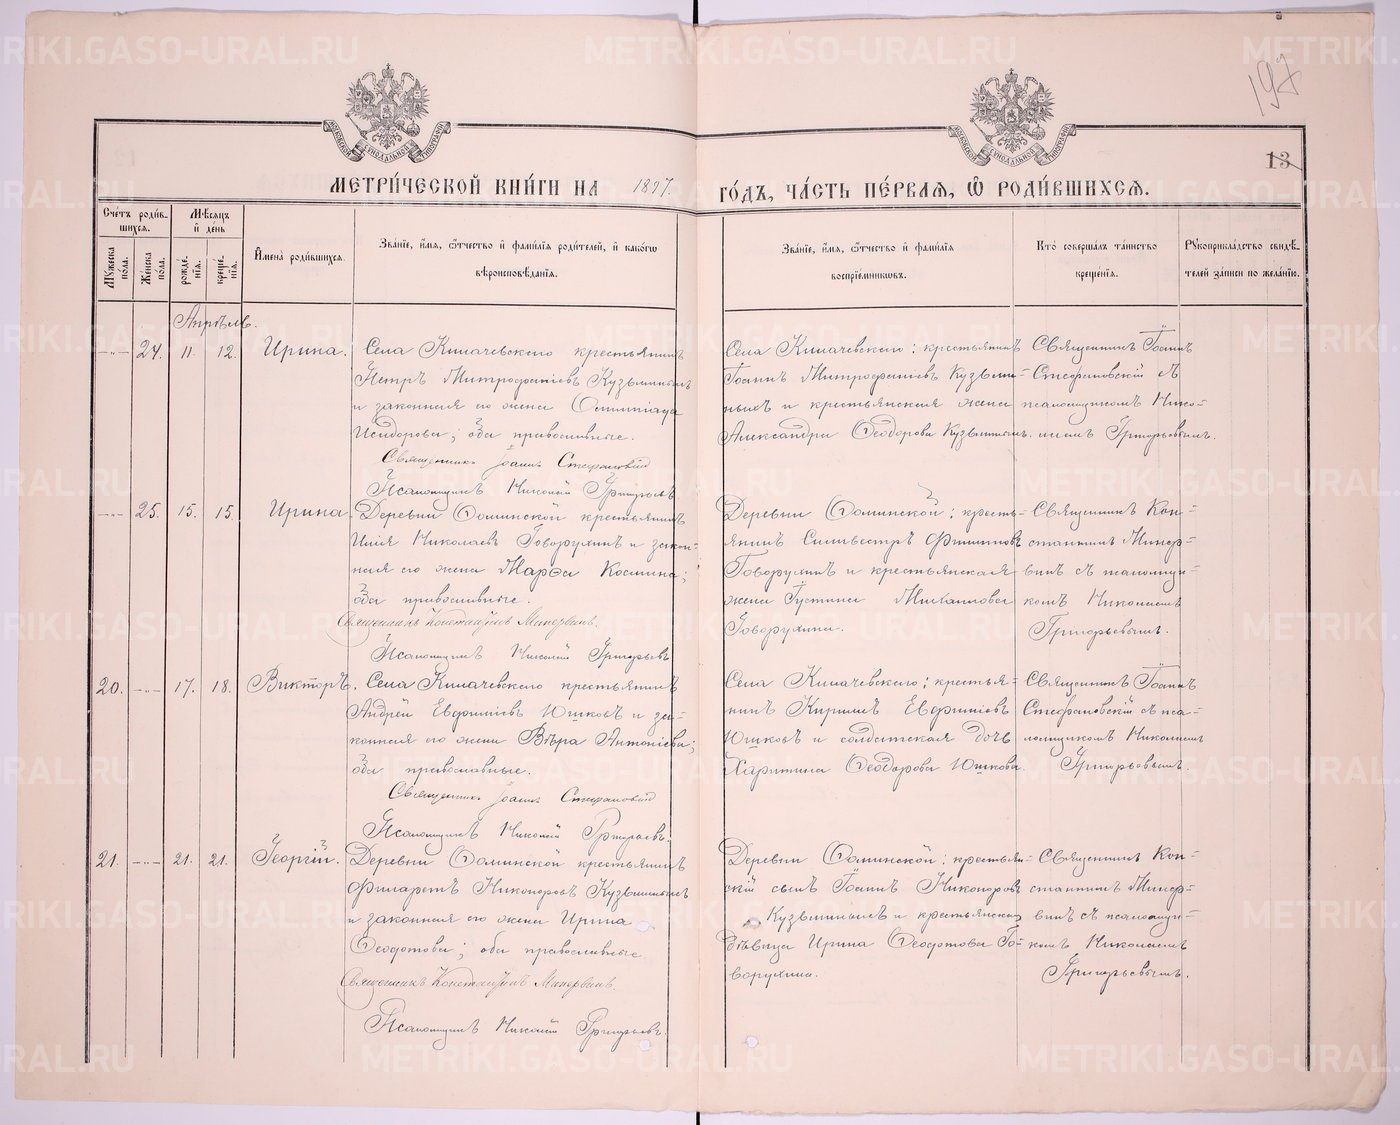 197
13
МОСКОВСКОЙ СѴНОДАЛЬНОЙ ТИПОГРАФІИ
МОСКОВСКОЙ СѴНОДАЛЬНОЙ ТИПОГРАФІИ
МЕТРИ́ЧЕСКОЙ КНИ́ГИ НА 1897. ГО́ДЪ, ЧА́СТЬ ПЕ́РВАѦ, Ѡ҆ РОДИ́ВШИХСѦ.
Сче́тъ роди́вшихсѧ.
Мѣ́сѧцъ и҆ день
Мꙋ́жеска по́ла.
Же́нска по́ла.
рожде́нїѧ.
креще́нїѧ.
И҆мена̀ роди́вшихсѧ.
Зва́нїе, и҆́мѧ, ѻ҆́тчество и҆ фами́лїѧ роди́телей, и҆ како́гѡ вѣроисповѣ́данїѧ.
Зва́нїе, и҆́мѧ, ѻ҆́тчество и҆ фами́лїѧ воспрїе́мниковъ.
Кто̀ соверша́лъ та́инство креще́нїѧ.
Рꙋкоприкла́дство свидѣ́телей за́писи по жела́нїю.
Апрѣль.
-"- 24. 11. 12. Ирина.
Села Кипачевского крестьянинъ
Петръ Митрофаніевъ Кузьминыхъ
и законная его жена Олимпіада
Исидорова; оба православные.
Священникъ Іоаннъ Стефановскій
Псаломщикъ Николай Григорьевъ
Села Кипачевского: крестьянинъ
Іоаннъ Митрофаніевъ Кузьми=
ныхъ и крестьянская жена
Александра Ѳеодорова Кузьминыхъ.
Священникъ Іоаннъ
Стефановскій съ
псаломщикомъ Нико=
лаемъ Григорьевымъ.
-"- 25. 15. 15. Ирина.
Деревни Ѳоминской крестьянинъ
Илія Николаевъ Говорухинъ и закон=
ная его жена Марѳа Космина;
оба православные.
Священникъ Константинъ Минервинъ.
Псаломщикъ Николай Григорьевъ
Деревни Ѳоминской: кресть=
янинъ Сильвестръ Филипповъ
Говорухинъ и крестьянская
жена Густина Михаилова
Говорухина.
Священникъ Кон=
стантинъ Минер=
винъ съ псаломщи=
комъ Николаемъ
Григорьевымъ.
20. -"- 17. 18. Викторъ.
Села Кипачевского крестьянинъ
Андрей Евфиміевъ Юшковъ и за=
конная его жена Вѣра Антоніева;
оба православные.
Священникъ Іоаннъ Стефановскій
Псаломщикъ Николай Григорьевъ.
Села Кипачевского: крестья=
нинъ Кириллъ Евфиміевъ
Юшковъ и солдатская дочь
Харитина Ѳеодорова Юшкова.
Священникъ Іоаннъ
Стефановскій съ пса=
ломщикомъ Николаемъ
Григорьевымъ.
21. -"- 21. 21. Георгій.
Деревни Ѳоминской крестьянинъ
Филаретъ Никоноровъ Кузьминыхъ
и законная его жена Ирина
Ѳеодотова; оба православные
Священникъ Константинъ Минервинъ.
Псаломщикъ Николай Григорьевъ
Деревни Ѳоминской: крестьян=
скій сынъ Іоаннъ Никоноровъ
Кузьминыхъ и крестьянская
дѣвица Ирина Ѳеодотова Го=
ворухина.
Священникъ Кон=
стантинъ Минер=
винъ съ псаломщи=
комъ Николаемъ
Григорьевымъ.
METRIKI.GASO-URAL.RU